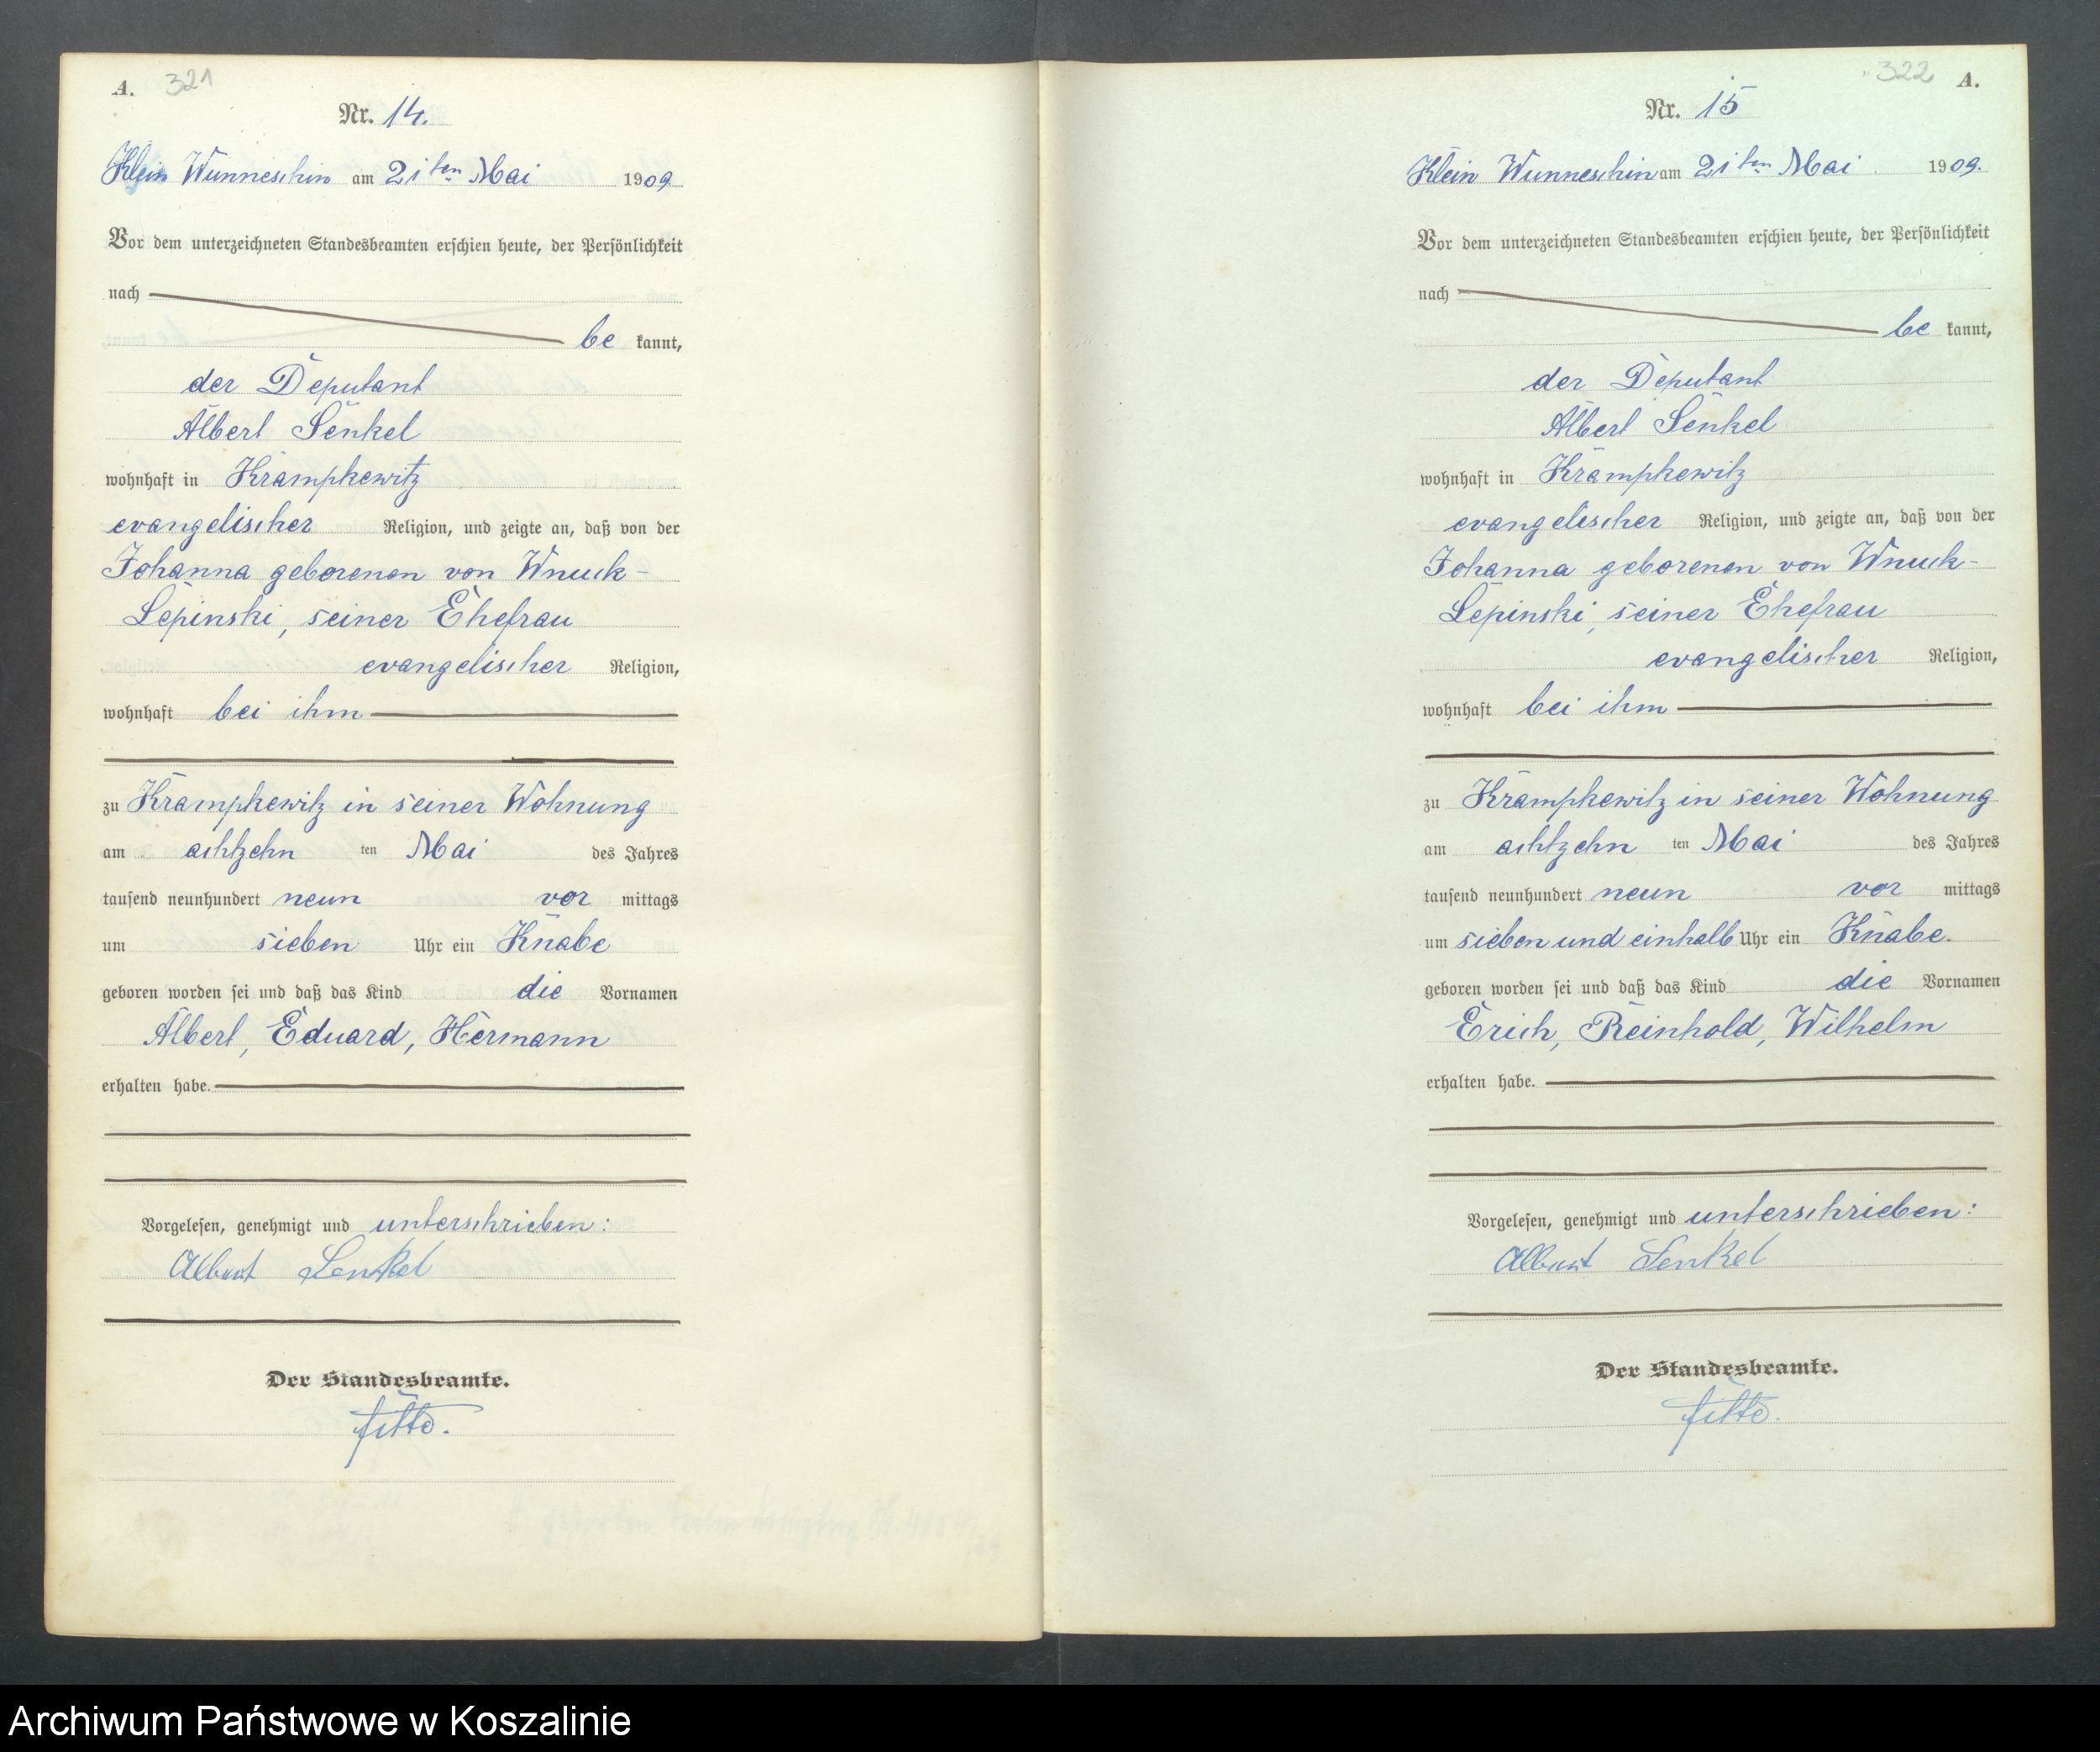 A. 321
Nr. 14.
Klein Wunneschin am 21ten Mai 1909
Vor dem unterzeichneten Standesbeamten erschien heute, der Persönlichkeit
nach
be kannt,
der Deputant
Albert Senkel
wohnhaft in Krampkewitz
evangelischer Religion, und zeigte an, daß von der
Johanna geborenen von Wnuck-
Lepinski, seiner Ehefrau
evangelischer Religion,
wohnhaft bei ihm
zu Krampkewitz in seiner Wohnung
am achtzehn ten Mai des Jahres
tausend neunhundert neun vor mittags
um sieben Uhr ein Knabe
geboren worden sei und daß das Kind die Vornamen
Albert, Eduard, Hermann
erhalten habe.
Vorgelesen, genehmigt und unterschrieben:
Albert Senkel
Der Standesbeamte.
322 A.
Nr. 15
Klein Wunneschin am 21ten Mai 1909.
Vor dem unterzeichneten Standesbeamten erschien heute, der Persönlichkeit
nach
be kannt,
der Deputant
Albert Senkel
wohnhaft in Krampkewitz
evangelischer Religion, und zeigte an, daß von der
Johanna geborenen von Wnuck-
Lepinski, seiner Ehefrau
evangelischer Religion,
wohnhaft bei ihm
zu Krampkewitz in seiner Wohnung
am achtzehn ten Mai des Jahres
tausend neunhundert neun vor mittags
um sieben und einhalb Uhr ein Knabe.
geboren worden sei und daß das Kind die Vornamen
Erich, Reinhold, Wilhelm
erhalten habe.
Vorgelesen, genehmigt und unterschrieben:
Albert Senkel
Der Standesbeamte.
Archiwum Państwowe w Koszalinie